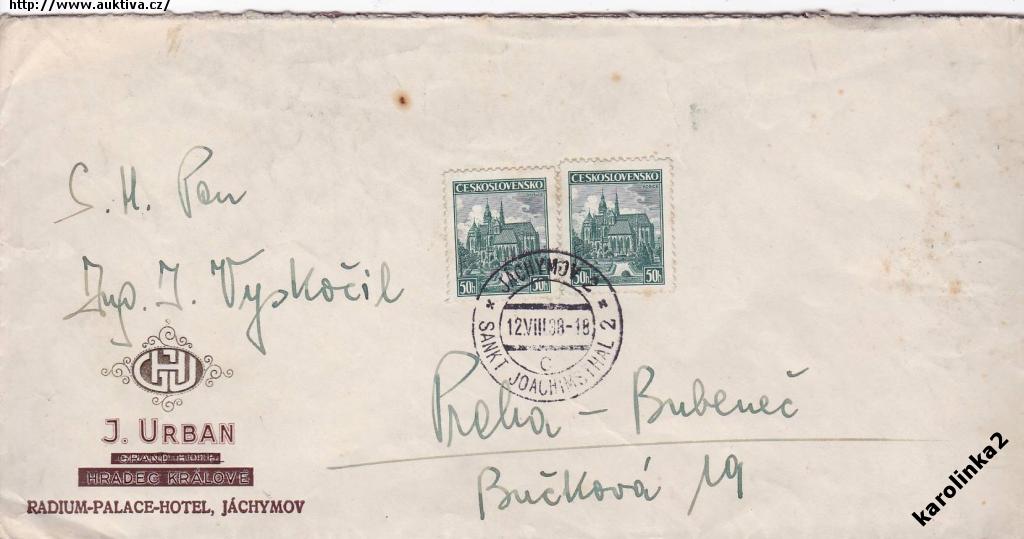 http://www.auktiva.cz/
S. H. Pan
Ing. J. Vyskočil
ČESKOSLOVENSKO
50h
50h
ČESKOSLOVENSKO
KOŠICE
50h
50h
JÁCHYMOV 2
12.VIII.38-18
C
* SANKT JOACHIMSTHAL 2 *
Praha – Bubeneč
Bučková 19
J. URBAN
GRAND HOTEL
HRADEC KRÁLOVÉ
RADIUM-PALACE-HOTEL, JÁCHYMOV
karolinka2